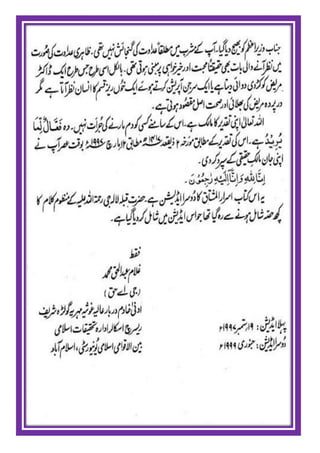 جناب وزیراعظم کو بھیج دیا گیا۔ آپ کے مشرب میں مطلقاً عداوت کی گنجائش نہیں تھی۔ ظاہری عداوت کی صورت
میں نظر آنے والی بات بھی حقیقتاً محبت اور خیرخواہی پر مبنی ہوتی تھی۔ بالکل اسی طرح جس طرح ایک ڈاکٹر
مریض کو کڑوی دوائی دیتا ہے یا ایک سرجن آپریشن کرتے ہوئے ایک خونریز قسم کا انسان نظر آتا ہے مگر
درپردہ مریض کی بھلائی اور صحت اصل مقصود ہوتی ہے۔
اللہ تعالیٰ اپنی تقدیر کا مالک ہے۔ اس کے سامنے کسی کو دم مارنے کی جرأت نہیں۔ وہ فَعَّالٌ لِّمَا
یُرِیْدُ ہے۔ اس کی تقدیر کے مطابق مورخہ ۲ ذیقعد بمطابق ۱۲ مارچ ۱۹۹۷ء بوقت عصر آپ نے
اپنی جان مالک حقیقی کے سپرد کر دی۔
اِنَّا لِلّٰہِ وَاِنَّا اِلَیْہِ رٰجِعُوْنَ۔
یہ اس کتاب اسرار المشتاق کا دوسرا ایڈیشن ہے۔ حضرت قبلہ لالہ جی رحمۃ اللہ علیہ کے منظوم کلام کا
کچھ حصہ شامل ہونے سے رہ گیا تھا جو اس ایڈیشن میں شامل کر دیا گیا ہے۔
فقط
غلام عبدالحق محمد
(جی اے حق)
ادنیٰ خادم دربار عالیہ غوثیہ مہریہ گولڑہ شریف
ریسرچ اسکالر ادارہ تحقیقات اسلامی
بین الاقوامی اسلامی یونیورسٹی، اسلام آباد
پہلا ایڈیشن : ۱۹ ستمبر ۱۹۹۷ء
دوسرا ایڈیشن : جنوری ۱۹۹۹ء